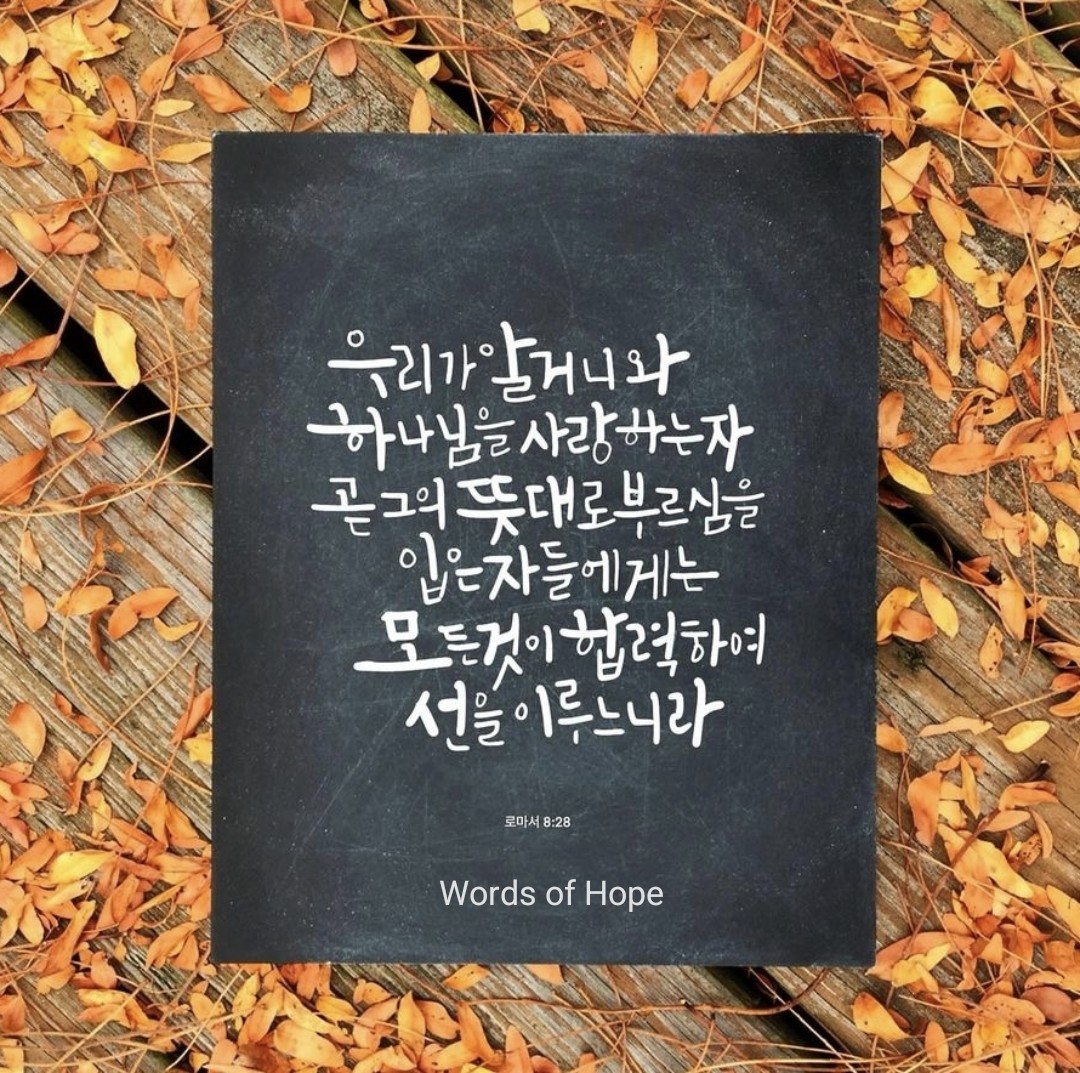 우리가 알거니와
하나님을 사랑하는자
곧 그의 뜻대로 부르심을
입은자들에게는
모든것이 합력하여
선을 이루느니라
로마서 8:28
Words of Hope